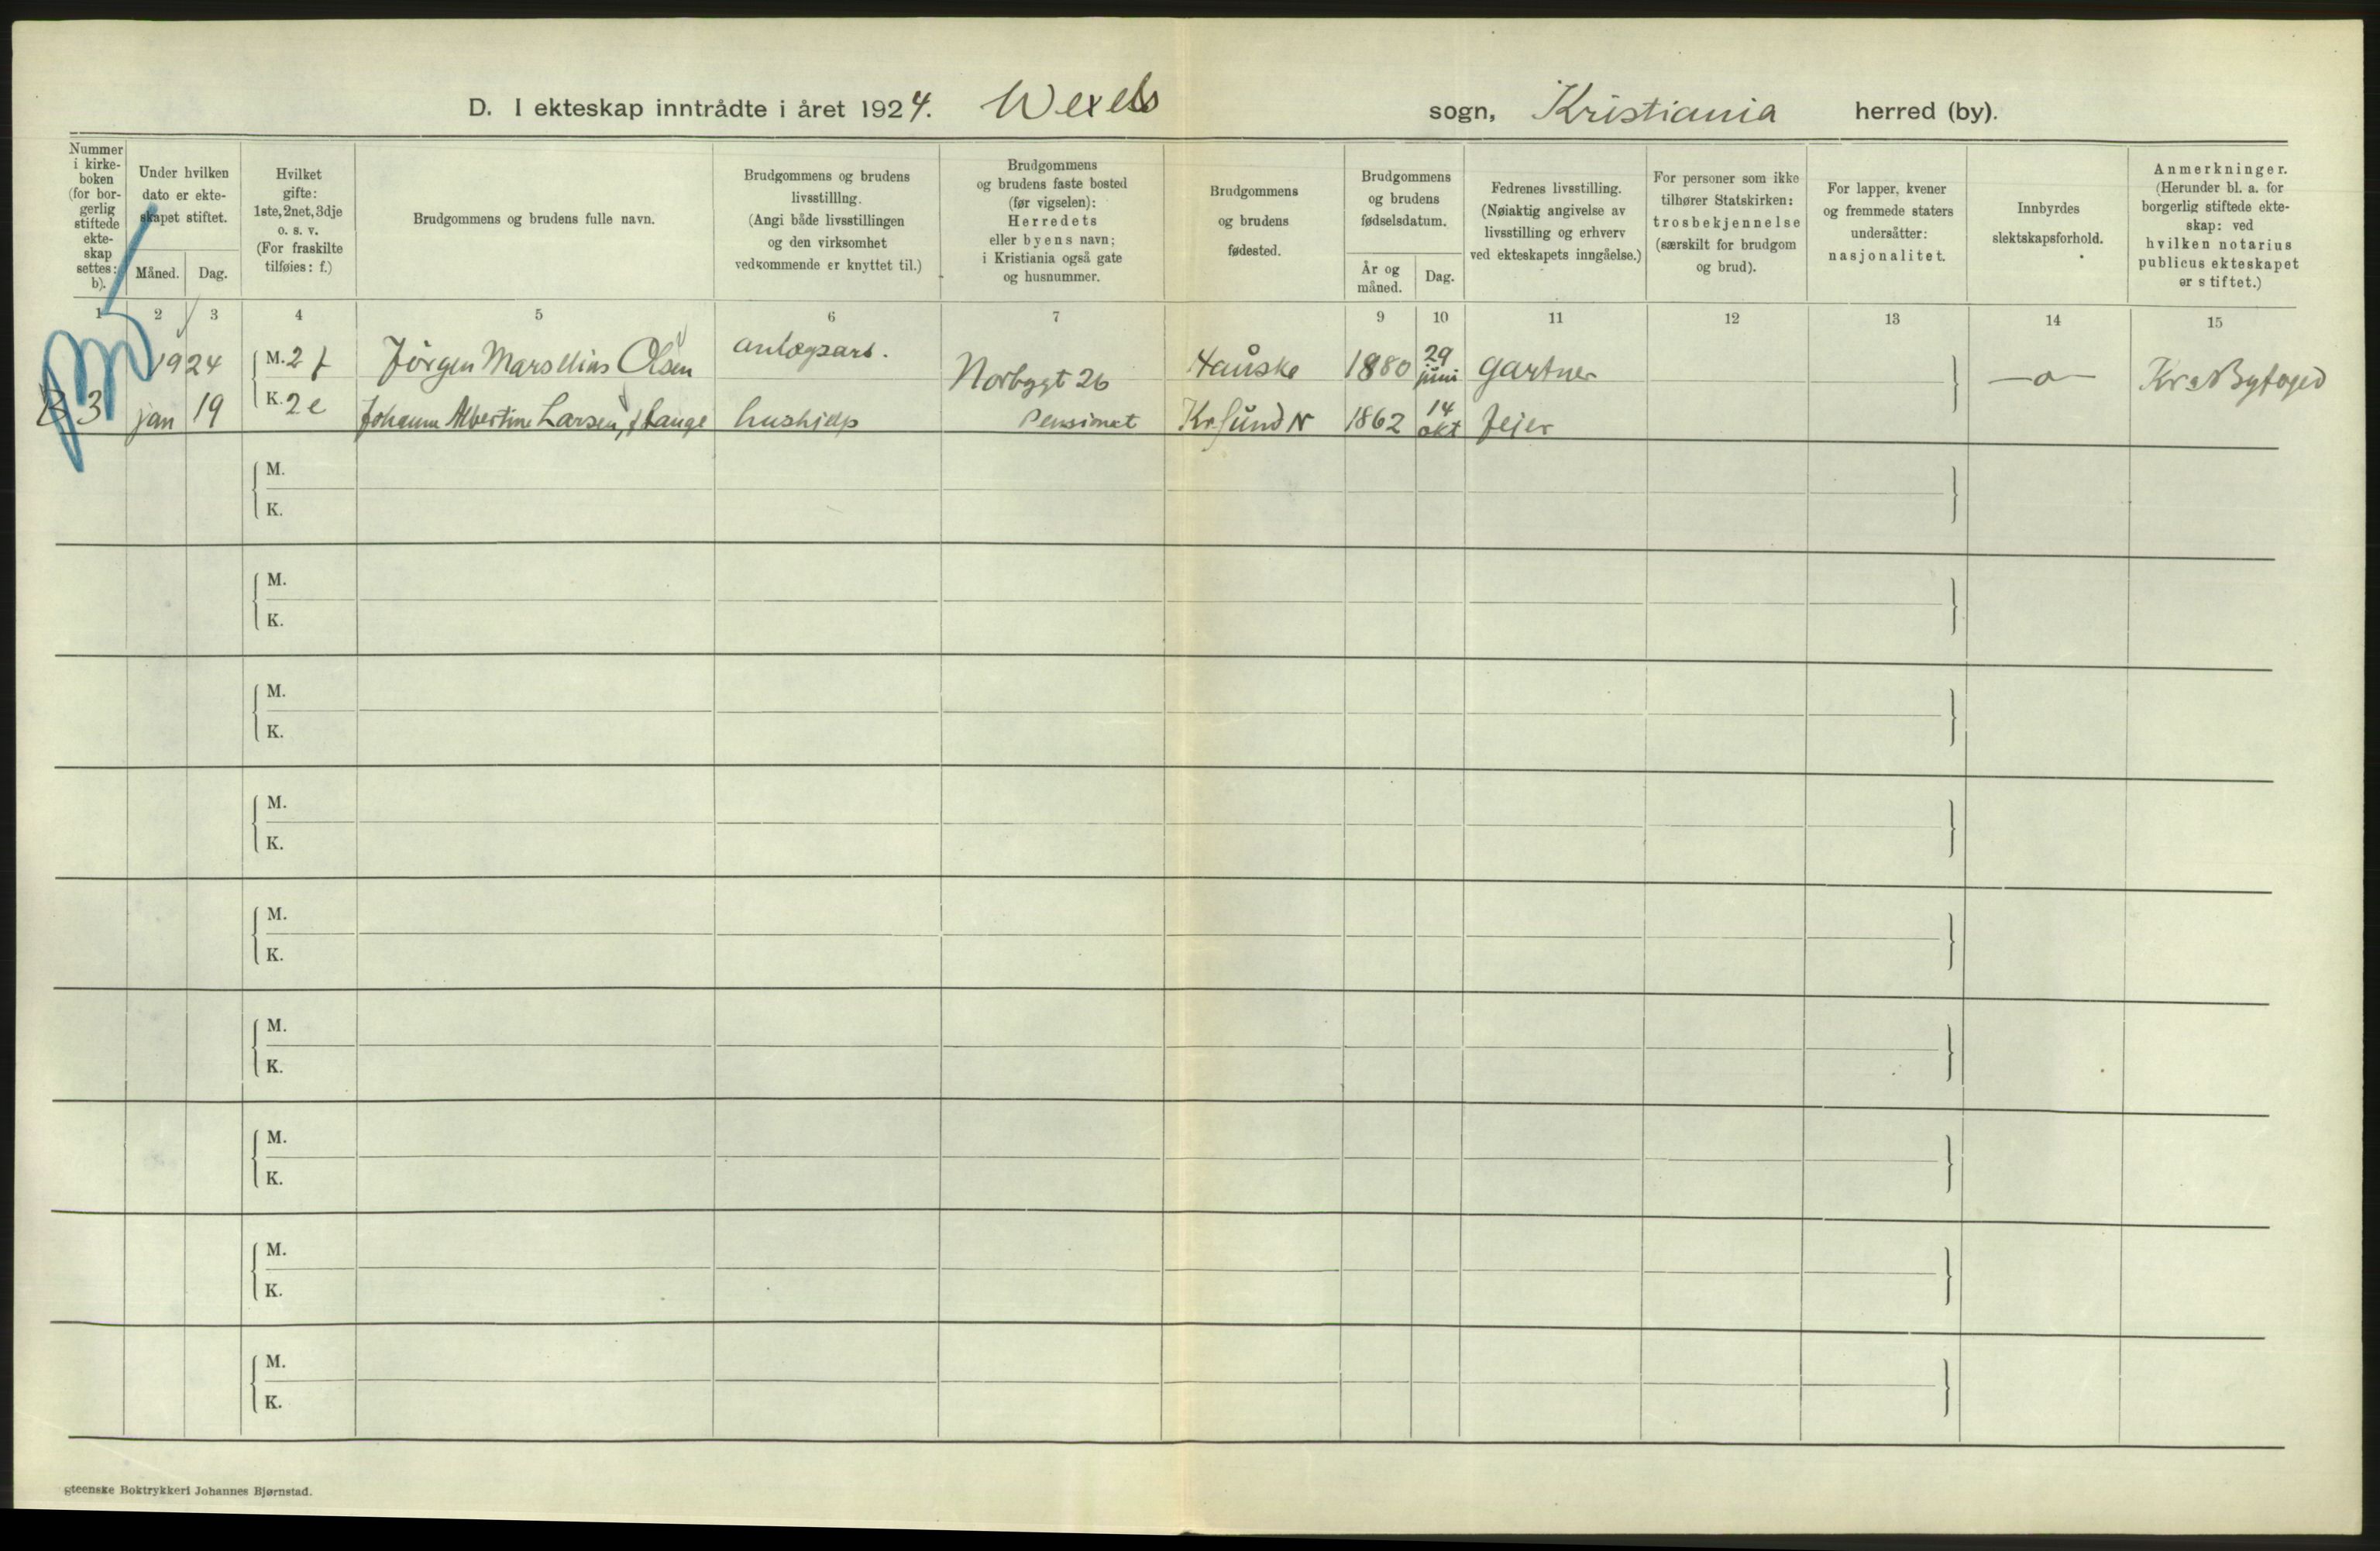 D. I ekteskap inntrådte i året 1924. Wexels sogn, Kristiania herred (by).
Nummer
i kirke-
boken
(for bor-
gerlig
stiftede
ekte-
skap
settes:
b).
Under hvilken
dato er ekte-
skapet stiftet.
Måned. Dag.
Hvilket
gifte:
1ste, 2net, 3dje
o. s. v.
(For fraskilte
tilføies: f.)
Brudgommens og brudens fulle navn.
Brudgommens og brudens
livsstilllng.
(Angi både livsstillingen
og den virksomhet
vedkommende er knyttet til.)
Brudgommens
og brudens faste bosted
(før vigselen):
Herredets
eller byens navn;
i Kristiania også gate
og husnummer.
Brudgommens
og brudens
fødested.
Brudgommens
og brudens
fødselsdatum.
År og
måned.
Dag.
Fedrenes livsstilling.
(Nøiaktig angivelse av
livsstilling og erhverv
ved ekteskapets inngåelse.)
For personer som ikke
tilhører Statskirken:
trosbekjennelse
(særskilt for brudgom
og brud).
For lapper, kvener
og fremmede staters
undersåtter:
nasjonalitet.
Innbyrdes
slektskapsforhold.
Anmerkninger.
(Herunder bl. a. for
borgerlig stiftede ekte-
skap: ved
hvilken notarius
publicus ekteskapet
er stiftet.)
1 2 3 4 5 6 7 9 10 11 12 13 14 15
1924 M. 2 f Jörgen Marsellius Olsen anlægsarb. Norbygt 26 Hauske 1880 29 juni gartner —o— Kra Byfoged
B 3 jan 19 K. 2 e Johanne Albertine Larsen, f Lange hushjelp Pensionat Kr.sund N 1862 14 okt fejer
M.
K.
M.
K.
M.
K.
M.
K.
M.
K.
M.
K.
M.
K.
M.
K.
M.
K.
gteenske Boktrykkeri Johannes Bjørnstad.